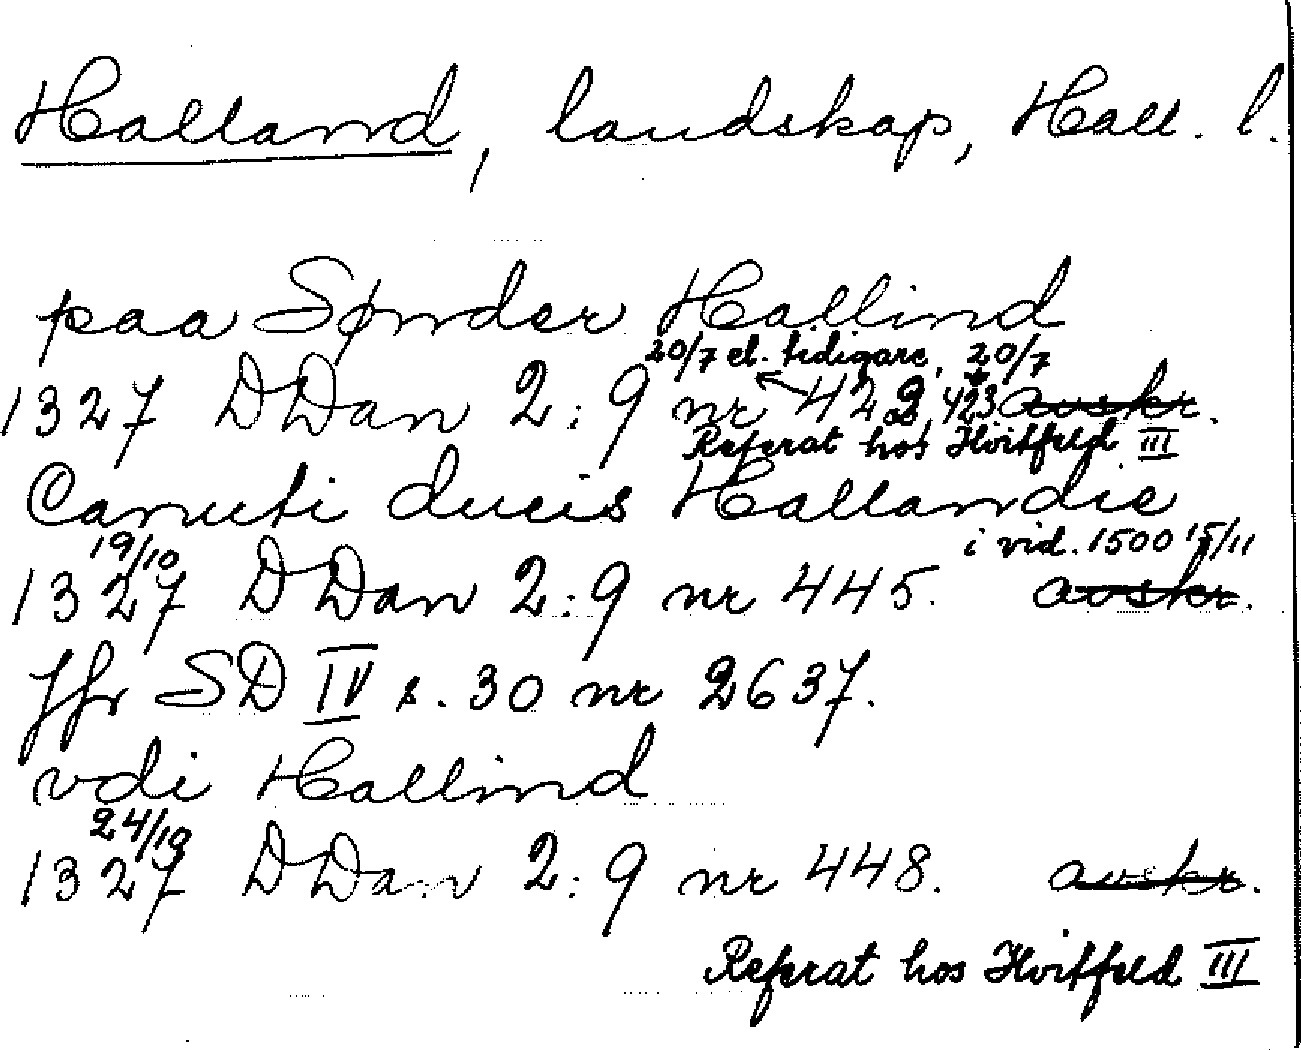 Halland, landskap, Hall. l.
paa Sønder Hallind
20/7 el. tidigare, 20/7
1327 DDan 2:9 nr 422, 423 avskr.
Referat hos Hvitfeld III
Canuti ducis Hallandie
19/10 i vid. 1500 15/11
1327 DDan 2:9 nr 445. avskr.
Jfr SD IV s. 30 nr 2637.
vdi Hallind
24/10
1327 DDan 2:9 nr 448. avskr.
Referat hos Hvitfeld III